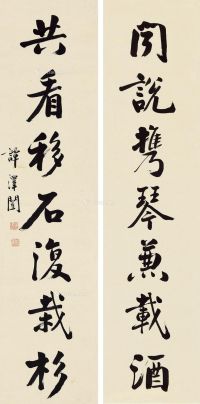 閒說携琴兼載酒
共看移石復栽杉
譚澤闓